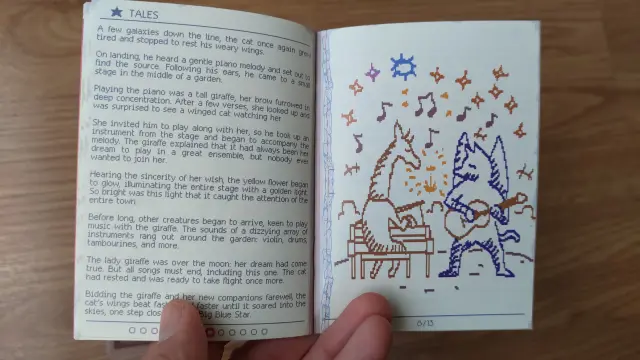 TALES
A few galaxies down the line, the cat once again grew
tired and stopped to rest his weary wings.
On landing, he heard a gentle piano melody and set out to
find the source. Following his ears, he came to a small
stage in the middle of a garden.
Playing the piano was a tall giraffe, her brow furrowed in
deep concentration. After a few verses, she looked up and
was surprised to see a winged cat watching her.
She invited him to play along with her, so he took up an
instrument from the stage and began to accompany the
melody. The giraffe explained that it had always been her
dream to play in a great ensemble, but nobody ever
wanted to join her.
Hearing the sincerity of her wish, the yellow flower began
to glow, illuminating the entire stage with a golden light.
So bright was this light that it caught the attention of the
entire town.
Before long, other creatures began to arrive, keen to play
music with the giraffe. The sounds of a dizzying array of
instruments rang out around the garden: violin, drums,
tambourines, and more.
The lady giraffe was over the moon: her dream had come
true. But all songs must end, including this one. The cat
had rested and was ready to take flight once more.
Bidding the giraffe and her new companions farewell, the
cat's wings beat faster until it soared into the
skies, one step Big Blue Star.
/15